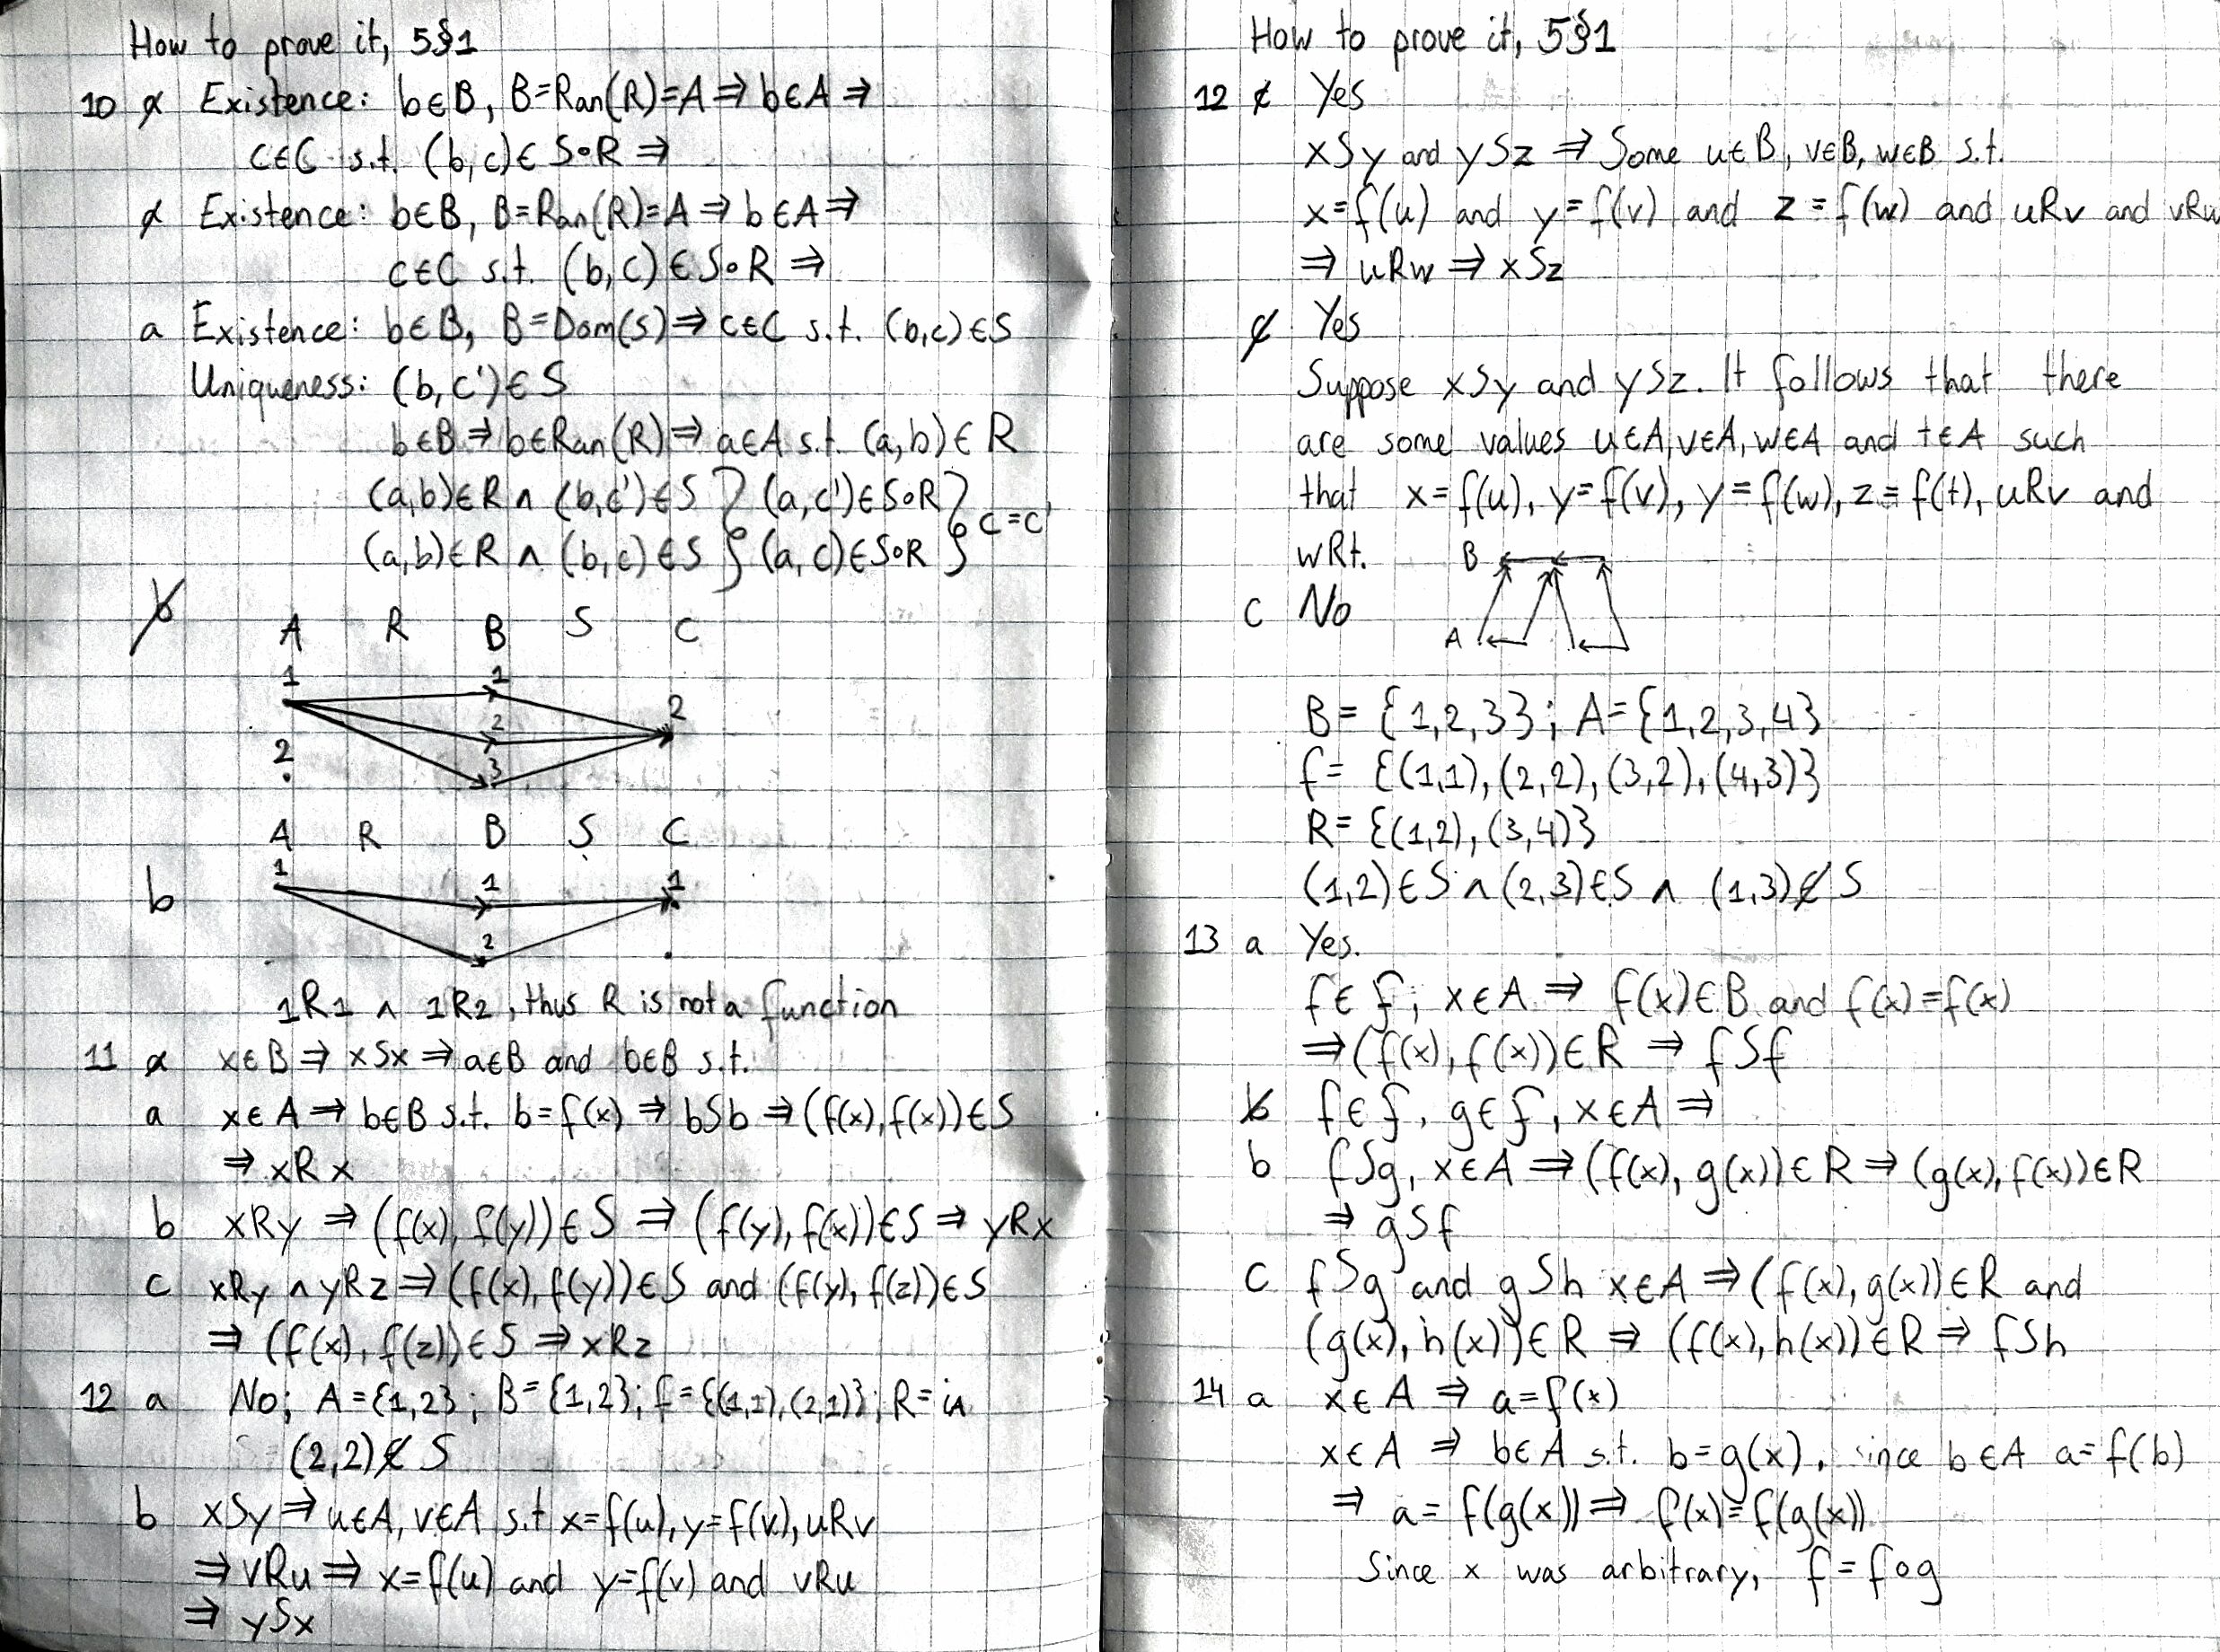 How to prove it, 5§1
10 a Existence: b∈B, B=Ran(R)=A ⇒ b∈A ⇒
c∈C s.t. (b,c)∈ S∘R ⇒
a Existence: b∈B, B=Ran(R)=A ⇒ b∈A ⇒
c∈C s.t. (b,c)∈S∘R ⇒
a Existence: b∈B, B=Dom(S) ⇒ c∈C s.t. (b,c)∈S
Uniqueness: (b,c')∈S
b∈B ⇒ b∈Ran(R) ⇒ a∈A s.t. (a,b)∈R
(a,b)∈R ∧ (b,c')∈S } (a,c')∈S∘R }
c=c'
(a,b)∈R ∧ (b,c)∈S } (a,c)∈S∘R }
b
A R B S C
1 1
2 2
2 3
A R B S C
b 1 1 1
2
1R1 ∧ 1R2, thus R is not a function
11 a x∈B ⇒ xSx ⇒ a∈B and b∈B s.t.
a x∈A ⇒ b∈B s.t. b=f(x) ⇒ bSb ⇒ (f(x),f(x))∈S
⇒ xRx
b xRy ⇒ (f(x),f(y))∈S ⇒ (f(y),f(x))∈S ⇒ yRx
c xRy ∧ yRz ⇒ (f(x),f(y))∈S and (f(y),f(z))∈S
⇒ (f(x),f(z))∈S ⇒ xRz
12 a No; A={1,2}; B={1,2}; f={(1,1),(2,1)}; R=iA
(2,2)∉S
b xSy ⇒ u∈A, v∈A s.t x=f(u), y=f(v), uRv
⇒ vRu ⇒ x=f(u) and y=f(v) and vRu
⇒ ySx
How to prove it, 5§1
12 c Yes
xSy and ySz ⇒ Some u∈B, v∈B, w∈B s.t.
x=f(u) and y=f(v) and z=f(w) and uRv and vRw
⇒ uRw ⇒ xSz
c Yes
Suppose xSy and ySz. It follows that there
are some values u∈A, v∈A, w∈A and t∈A such
that x=f(u), y=f(v), y=f(w), z=f(t), uRv and
wRt. B
c No A
B={1,2,3}; A={1,2,3,4}
f={(1,1),(2,2),(3,2),(4,3)}
R={(1,2),(3,4)}
(1,2)∈S ∧ (2,3)∈S ∧ (1,3)∉S
13 a Yes.
f∈f; x∈A ⇒ f(x)∈B and f(x)=f(x)
⇒ (f(x),f(x))∈R ⇒ fSf
b f∈f, g∈f, x∈A ⇒
b fSg, x∈A ⇒ (f(x),g(x))∈R ⇒ (g(x),f(x))∈R
⇒ gSf
c fSg and gSh x∈A ⇒ (f(x),g(x))∈R and
(g(x),h(x))∈R ⇒ (f(x),h(x))∈R ⇒ fSh
14 a x∈A ⇒ a=f(x)
x∈A ⇒ b∈A s.t. b=g(x), since b∈A a=f(b)
⇒ a=f(g(x)) ⇒ f(x)=f(g(x))
Since x was arbitrary, f=f∘g